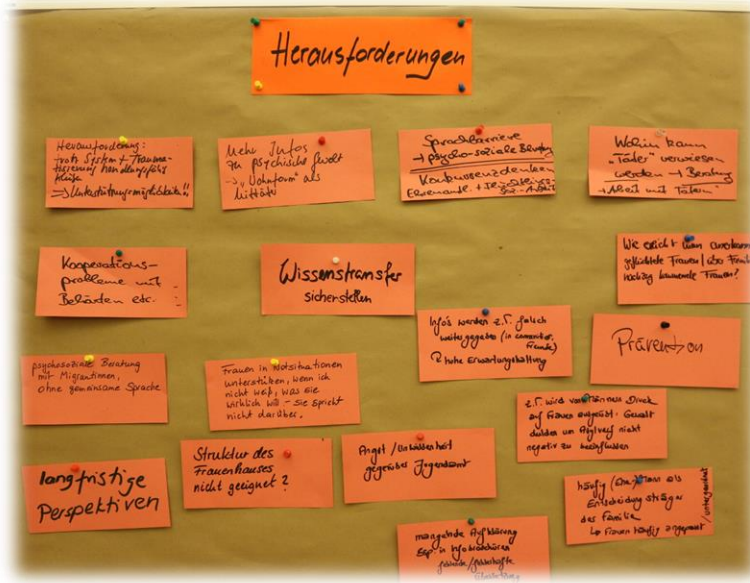 Herausforderungen
Herausforderung:
trotz System + Trauma-
tisierung handlungsfähig
→ Unterstützungsmöglichkeiten!!
Mehr Infos
zu psychische Gewalt
→ "Wohnform" als
Mittäter
Sprachbarriere
→ psycho-soziale Beratung
Konkurrenzdenken
Ehrenamtl. +
Wohin kann
"Täter" verwiesen
werden → Beratung
→ Arbeit mit Tätern
Kooperations-
probleme mit
Behörden etc.
Wissenstransfer
sicherstellen
Wie erreicht man
geflüchtete Frauen / über
kommende Frauen?
Infos werden z.T. falsch
weitergegeben (in
hohe Erwartungshaltung
Prävention
psychosoziale Beratung
mit Migrantinnen,
ohne gemeinsame Sprache
Frauen in Notsituationen
unterstützen, wenn ich
nicht weiß, was sie
wirklich will - sie spricht
nicht darüber.
z.T. wird von Männern Druck
auf Frauen ausgeübt. Gewalt
dulden um Asylverf. nicht
negativ zu beeinflussen
langfristige
Perspektiven
Struktur des
Frauenhauses
nicht geeignet?
Angst / Unwissenheit
gegenüber Jugendamt
häufig Mann als
Entscheidungsträger
der Familie
↳ Frauen häufig angepasst / untergeordnet
mangelnde Aufklärung
Bsp. in Infobroschüren
fehlende / fehlerhafte
Übersetzung